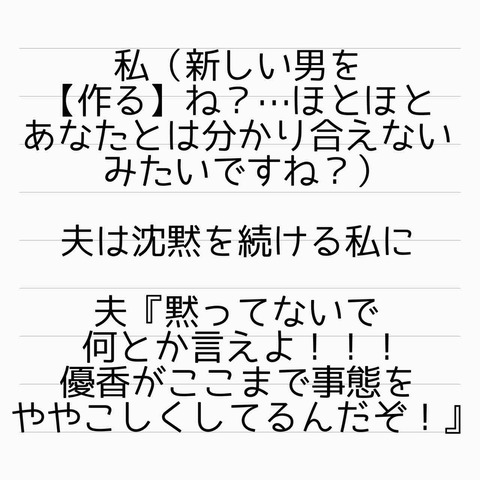 私（新しい男を
【作る】ね？…ほとほと
あなたとは分かり合えない
みたいですね？）
夫は沈黙を続ける私に
夫『黙ってないで
何とか言えよ！！！
優香がここまで事態を
ややこしくしてるんだぞ！』